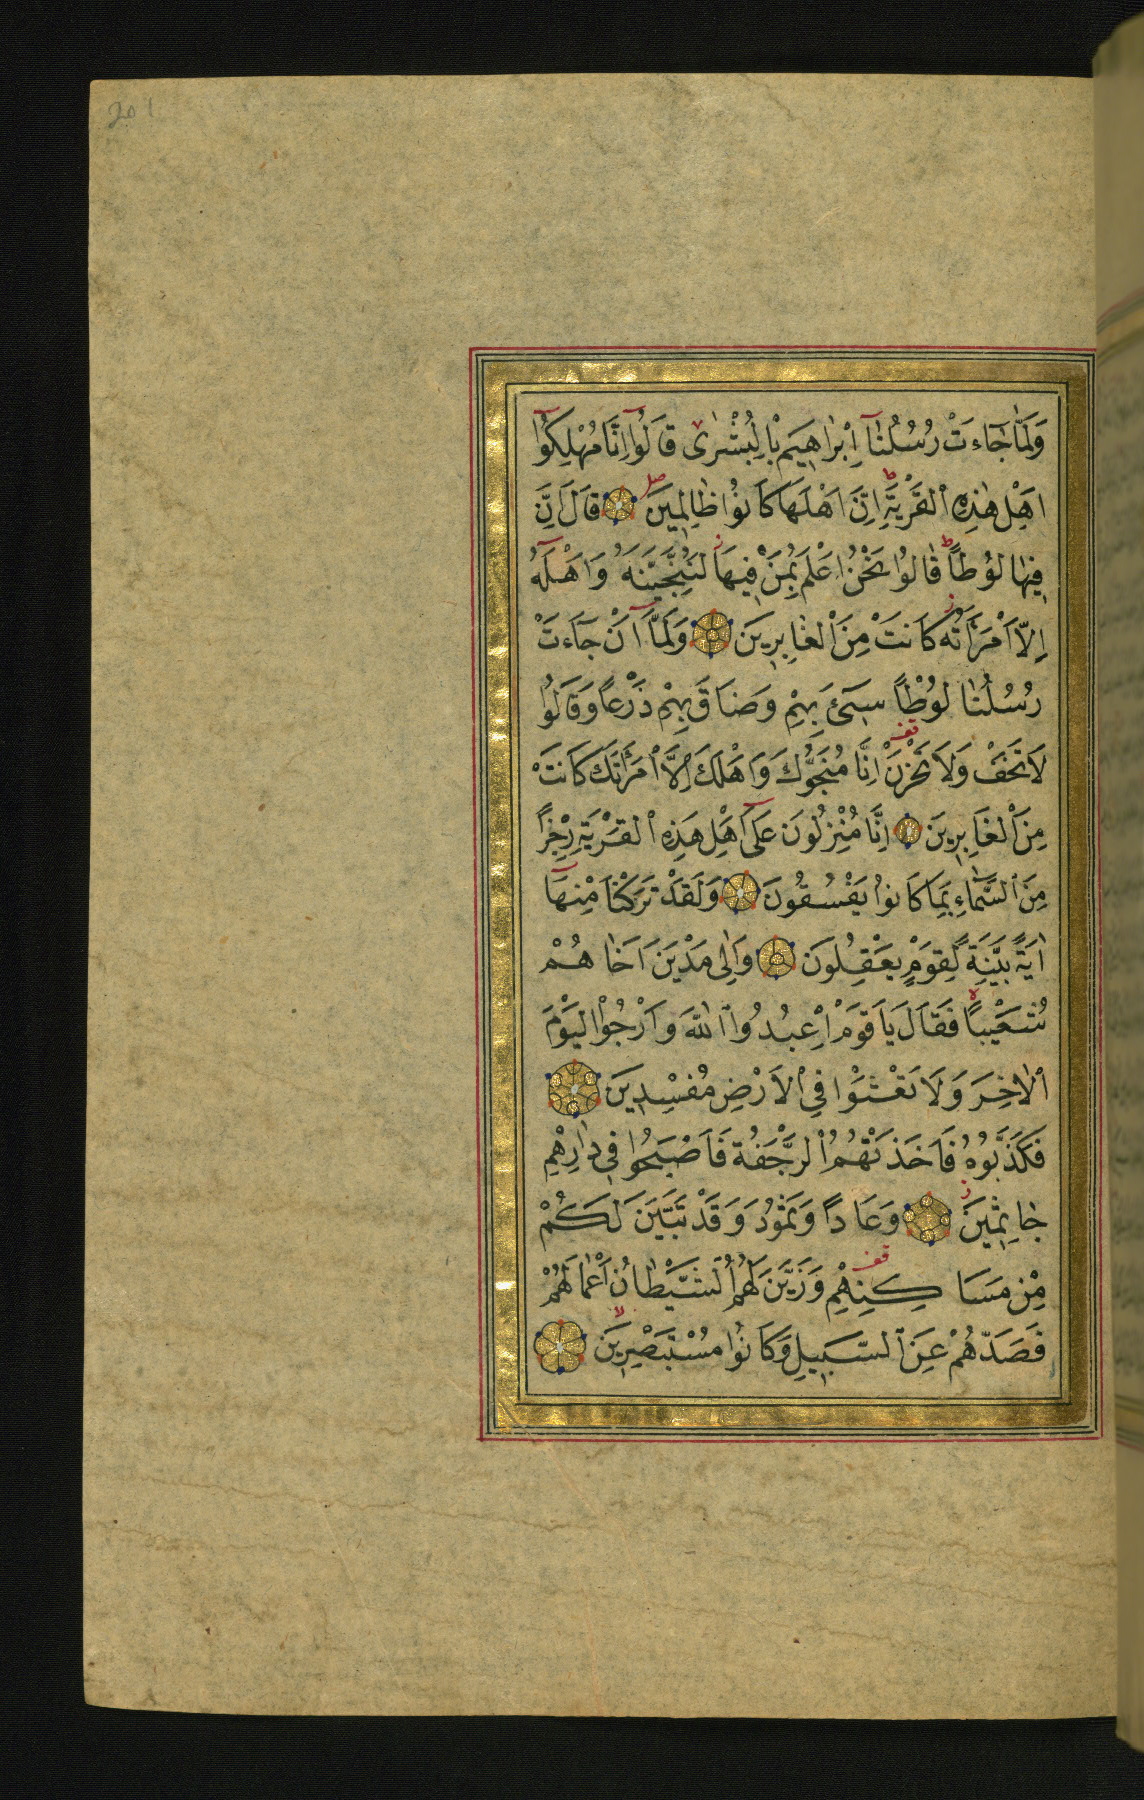 وَلَمَّا جَاءَتْ رُسُلُنَآ اِبْرٰاهِيمَ بِالْبُشْرٰى قَالُوٓا اِنَّا مُهْلِكُوٓا
اَهْلِ هٰذِهِ الْقَرْيَةِ اِنَّ اَهْلَهَا كَانُوا ظَالِمِينَ قَالَ اِنَّ
فِيهَا لُوطًا قَالُوا نَحْنُ اَعْلَمُ بِمَنْ فِيهَا لَنُنَجِّيَنَّهُ وَاَهْلَهُٓ
اِلَّا امْرَاَتَهُ كَانَتْ مِنَ الْغَابِرِينَ وَلَمَّآ اَنْ جَآءَتْ
رُسُلُنَا لُوطًا سِىٓءَ بِهِمْ وَضَاقَ بِهِمْ ذَرْعًا وَقَالُوا
لَا تَخَفْ وَلَا تَحْزَنْ اِنَّا مُنَجُّوكَ وَاَهْلَكَ اِلَّا امْرَاَتَكَ كَانَتْ
مِنَ الْغَابِرِينَ اِنَّا مُنْزِلُونَ عَلٰٓى اَهْلِ هَذِهِ الْقَرْيَةِ رِجْزًا
مِنَ السَّمَاءِ بِمَا كَانُوا يَفْسُقُونَ وَلَقَدْ تَرَكْنَا مِنْهَآ
اٰيَةً بَيِّنَةً لِقَوْمٍ يَعْقِلُونَ وَاِلٰى مَدْيَنَ اَخَاهُمْ
شُعَيْبًا فَقَالَ يَا قَوْمِ اعْبُدُوا اللّٰهَ وَارْجُوا الْيَوْمَ
الْاٰخِرَ وَلَا تَعْثَوْا فِي الْاَرْضِ مُفْسِدِينَ
فَكَذَّبُوهُ فَاَخَذَتْهُمُ الرَّجْفَةُ فَاَصْبَحُوا فِي دَارِهِمْ
جَاثِمِينَ وَعَادًا وَثَمُودَ وَقَدْ تَبَيَّنَ لَكُمْ
مِنْ مَسَاكِنِهِمْ وَزَيَّنَ لَهُمُ الشَّيْطَانُ اَعْمَالَهُمْ
فَصَدَّهُمْ عَنِ السَّبِيلِ وَكَانُوا مُسْتَبْصِرِينَ